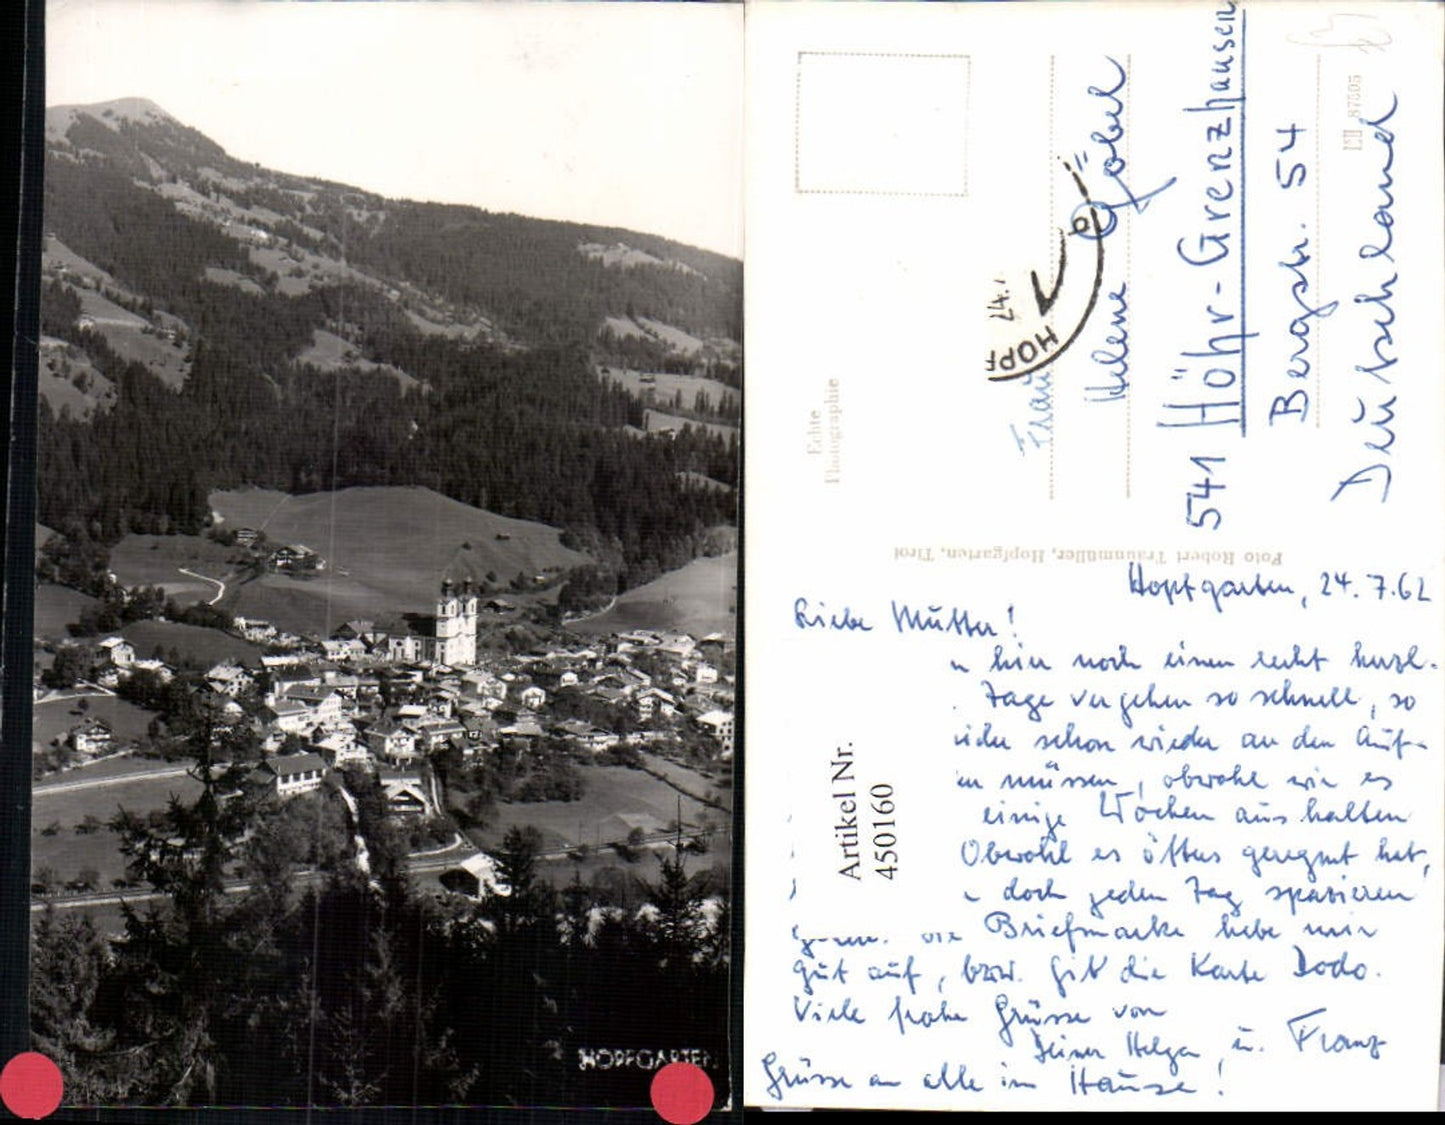 HOPFGARTEN
Echte
Photographie
Foto Robert Traumüller, Hopfgarten, Tirol
87505
HOPF
24.
Frau
Helene Göbel
541 Höhr-Grenzhausen
Bergstr. 54
Deutschland
Artikel Nr.
450160
Hopfgarten, 24.7.62
Liebe Mutter!
hier noch einen recht herzl.
Tage vergehen so schnell, so
schon wieder an den Auf-
müssen, obwohl wir es
einige Wochen aushalten
Obwohl es öfters geregnet hat,
doch jeden Tag spazieren
Die Briefmarke hebe mir
gut auf, bzw. gib die Karte Dodo.
Viele frohe Grüsse von
Deiner Helga u. Franz
Grüsse an alle im Hause!